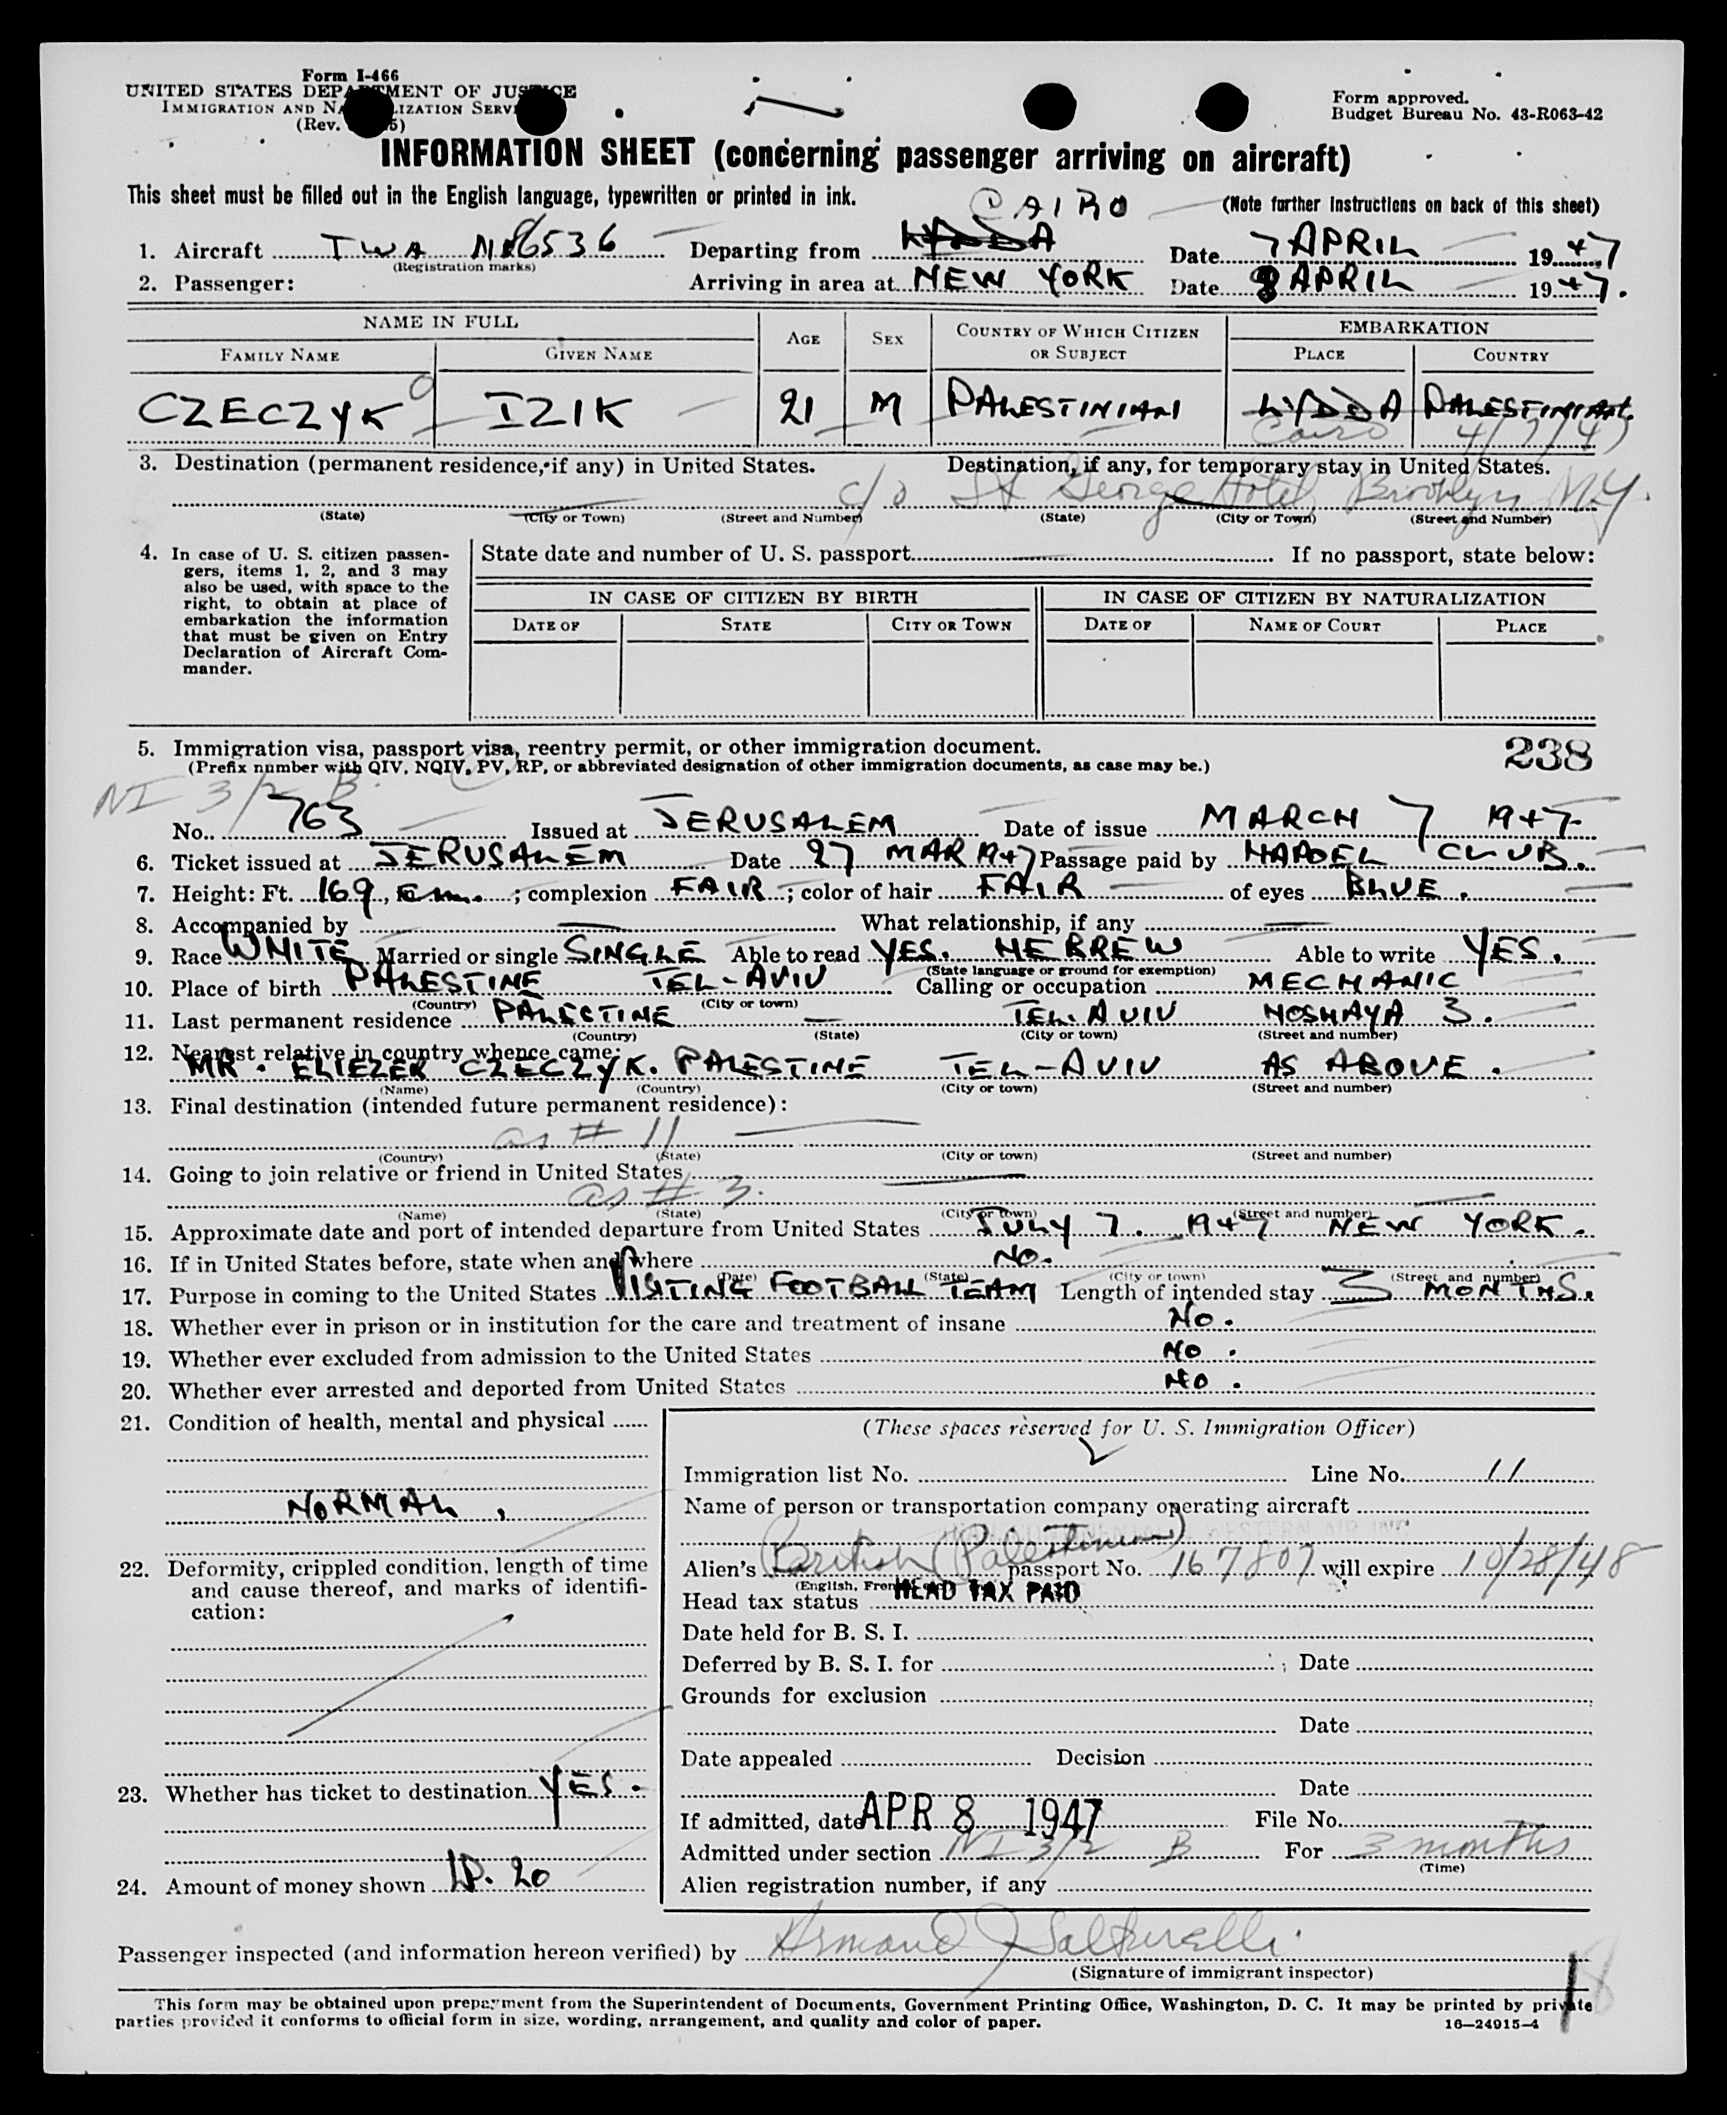 Form I-466
UNITED STATES DEPARTMENT OF JUSTICE
IMMIGRATION AND NATURALIZATION SERVICE
(Rev. 5)
Form approved.
Budget Bureau No. 43-R063-42
INFORMATION SHEET (concerning passenger arriving on aircraft)
This sheet must be filled out in the English language, typewritten or printed in ink.
(Note further instructions on back of this sheet)
CAIRO
1. Aircraft TWA 86536 Departing from LYDDA Date 7 APRIL 1947
(Registration marks)
2. Passenger: Arriving in area at NEW YORK Date 8 APRIL 1947.
NAME IN FULL AGE SEX COUNTRY OF WHICH CITIZEN OR SUBJECT EMBARKATION
FAMILY NAME GIVEN NAME PLACE COUNTRY
CZECZYK IZIK 21 M PALESTINIAN LYDDA PALESTINIAN
Cairo 4/7/47
3. Destination (permanent residence, if any) in United States. Destination, if any, for temporary stay in United States.
c/o St George Hotel, Brooklyn N.Y.
(State) (City or Town) (Street and Number) (State) (City or Town) (Street and Number)
4. In case of U. S. citizen passengers, items 1, 2, and 3 may also be used, with space to the right, to obtain at place of embarkation the information that must be given on Entry Declaration of Aircraft Commander.
State date and number of U. S. passport If no passport, state below:
IN CASE OF CITIZEN BY BIRTH IN CASE OF CITIZEN BY NATURALIZATION
DATE OF STATE CITY OR TOWN DATE OF NAME OF COURT PLACE
5. Immigration visa, passport visa, reentry permit, or other immigration document.
(Prefix number with QIV, NQIV, PV, RP, or abbreviated designation of other immigration documents, as case may be.)
238
NI 3/2 B.
No. 763 Issued at JERUSALEM Date of issue MARCH 7 1947
6. Ticket issued at JERUSALEM Date 27 MAR 1947 Passage paid by HAPOEL CLUB.
7. Height: Ft. 169, cm. ; complexion FAIR ; color of hair FAIR of eyes BLUE.
8. Accompanied by What relationship, if any
9. Race WHITE Married or single SINGLE Able to read YES. HEBREW Able to write YES.
(State language or ground for exemption)
10. Place of birth PALESTINE TEL-AVIV Calling or occupation MECHANIC
(Country) (City or town)
11. Last permanent residence PALESTINE TEL-AVIV MOSHAYA 3.
(Country) (State) (City or town) (Street and number)
12. Nearest relative in country whence came:
MR. ELIEZER CZECZYK. PALESTINE TEL-AVIV AS ABOVE.
(Name) (Country) (City or town) (Street and number)
13. Final destination (intended future permanent residence):
as # 11
(Country) (State) (City or town) (Street and number)
14. Going to join relative or friend in United States
as # 3.
(Name) (State) (City or town) (Street and number)
15. Approximate date and port of intended departure from United States JULY 7. 1947 NEW YORK.
16. If in United States before, state when and where No.
(Date) (State) (City or town) (Street and number)
17. Purpose in coming to the United States VISTING FOOTBALL TEAM Length of intended stay 3 MONTHS.
18. Whether ever in prison or in institution for the care and treatment of insane No.
19. Whether ever excluded from admission to the United States No.
20. Whether ever arrested and deported from United States No.
21. Condition of health, mental and physical
NORMAL,
22. Deformity, crippled condition, length of time and cause thereof, and marks of identification:
23. Whether has ticket to destination YES.
24. Amount of money shown LP. 20
(These spaces reserved for U. S. Immigration Officer)
Immigration list No. 2 Line No. 11
Name of person or transportation company operating aircraft
Alien's British (Palestinian) passport No. 167807 will expire 10/28/48
(English, Fren
Head tax status HEAD TAX PAID
Date held for B. S. I.
Deferred by B. S. I. for ; Date
Grounds for exclusion
Date
Date appealed Decision
Date
If admitted, date APR 8 1947 File No.
Admitted under section NI 3/2 B For 3 months
(Time)
Alien registration number, if any
Passenger inspected (and information hereon verified) by
(Signature of immigrant inspector)
This form may be obtained upon prepayment from the Superintendent of Documents, Government Printing Office, Washington, D. C. It may be printed by private
parties provided it conforms to official form in size, wording, arrangement, and quality and color of paper.
16—24915-4